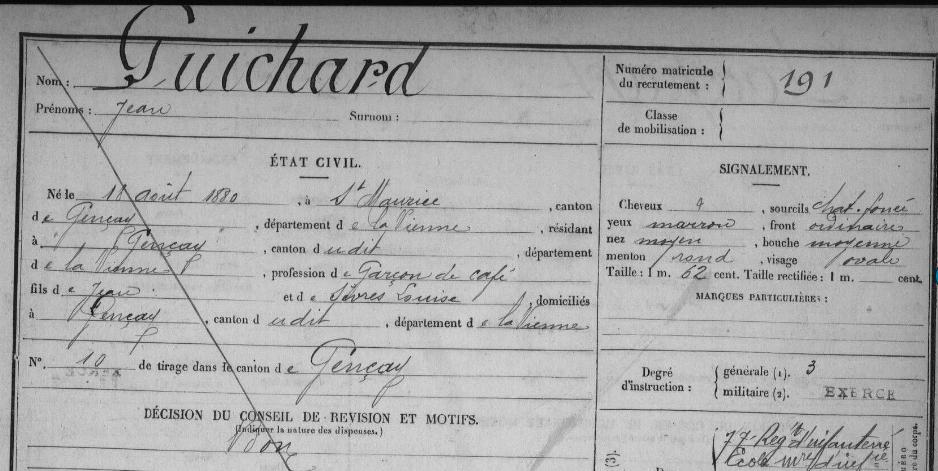 Nom : Guichard
Prénoms : Jean Surnom :
Numéro matricule
du recrutement : 191
Classe
de mobilisation :
ÉTAT CIVIL.
Né le 11 août 1880, à St Maurice, canton
de Gençay, département de la Vienne, résidant
à Gençay, canton dudit, département
de la Vienne, profession de Garçon de café
fils de Jean et de Louise, domiciliés
à Gençay, canton dudit, département de la Vienne
N° 10 de tirage dans le canton de Gençay
DÉCISION DU CONSEIL DE REVISION ET MOTIFS.
(Indiquer la nature des dispenses.)
Bon
SIGNALEMENT.
Cheveux, sourcils chat. foncé
yeux marron, front ordinaire
nez moyen, bouche moyenne
menton rond, visage ovale
Taille : 1 m. 62 cent. Taille rectifiée : 1 m. cent.
MARQUES PARTICULIÈRES :
Degré
d'instruction :
générale (1). 3
militaire (2). EXERCÉ
Regt d'infanterie
(3).